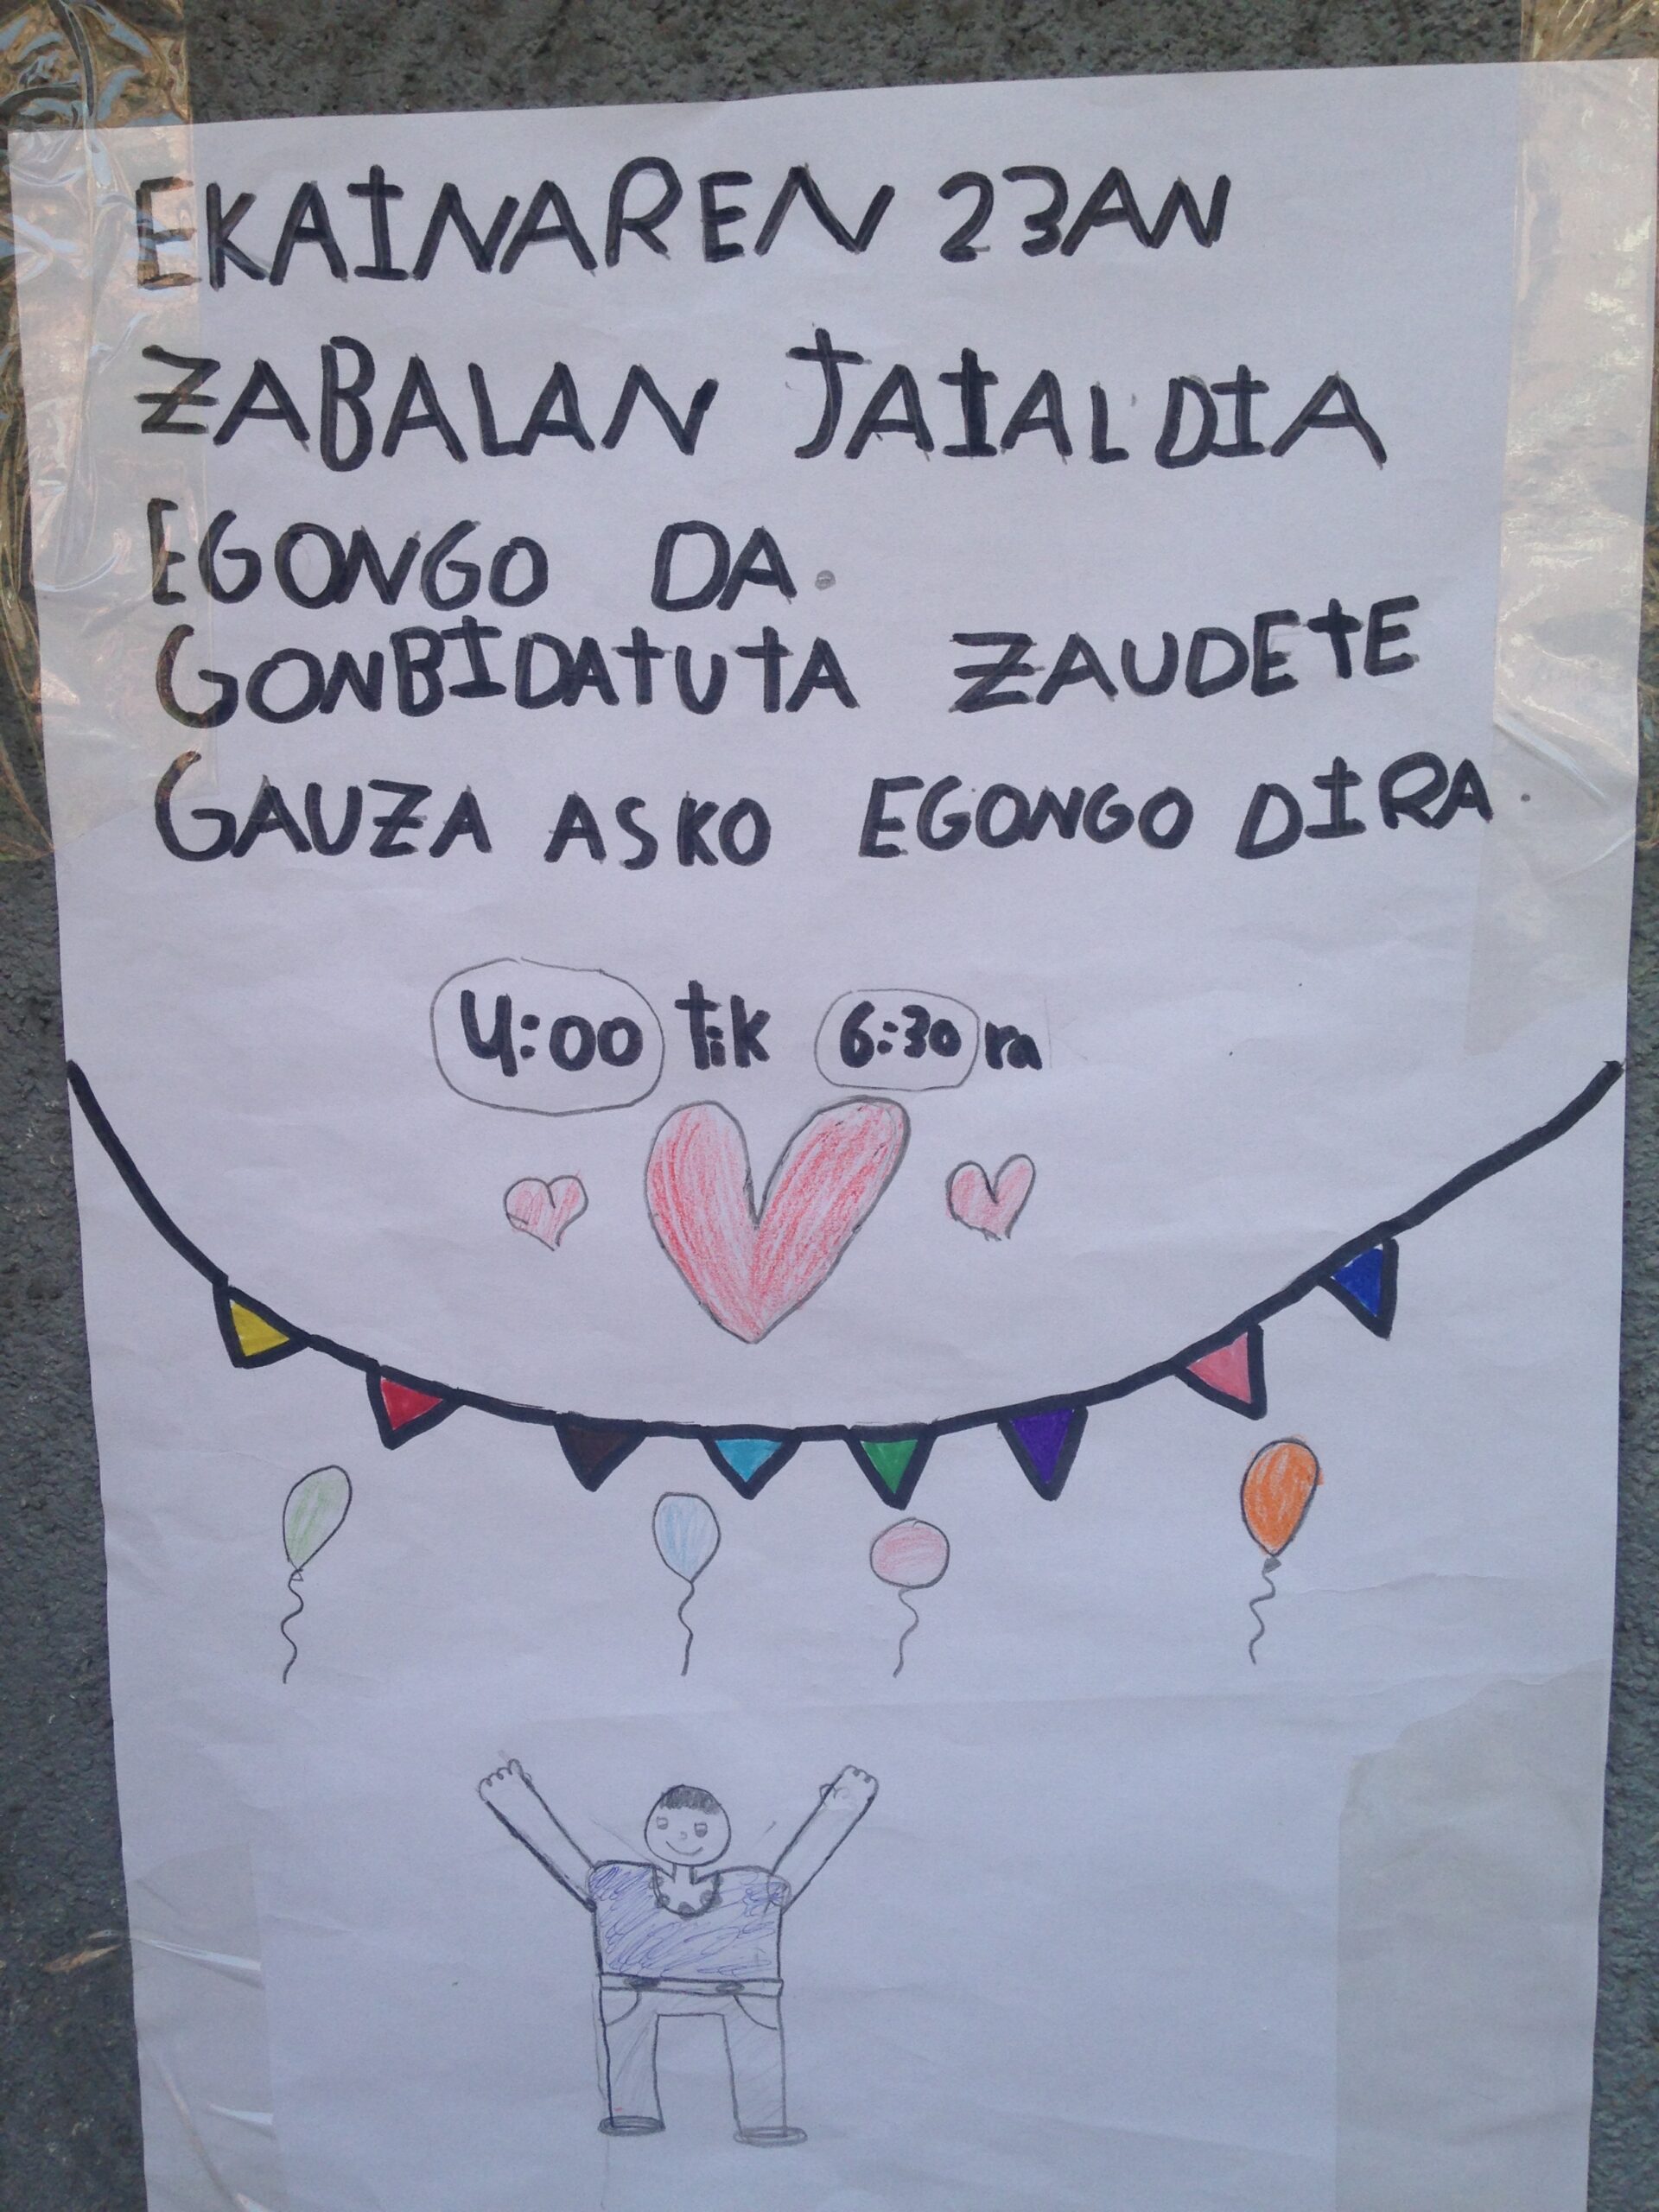 EKAINAREN 23AN
ZABALAN JAIALDIA
EGONGO DA.
GONBIDATUTA ZAUDETE
GAUZA ASKO EGONGO DIRA.
4:00 tik 6:30 ra